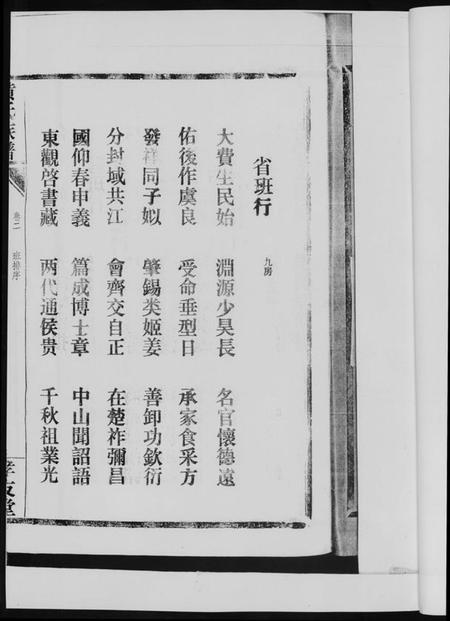 省班行
九房
大費生民始 淵源少昊長 名官懷德遠
佑後作虞良 受命垂型日 承家食采方
發祥同子姒 肇錫类姬姜 善卸功欽衍
分封域共江 會齊交自正 在楚祚彌昌
國仰春申義 篇成博士章 中山聞詔語
東觀啓書藏 两代通侯贵 千秋祖業光
卷二 班排序
孝友堂